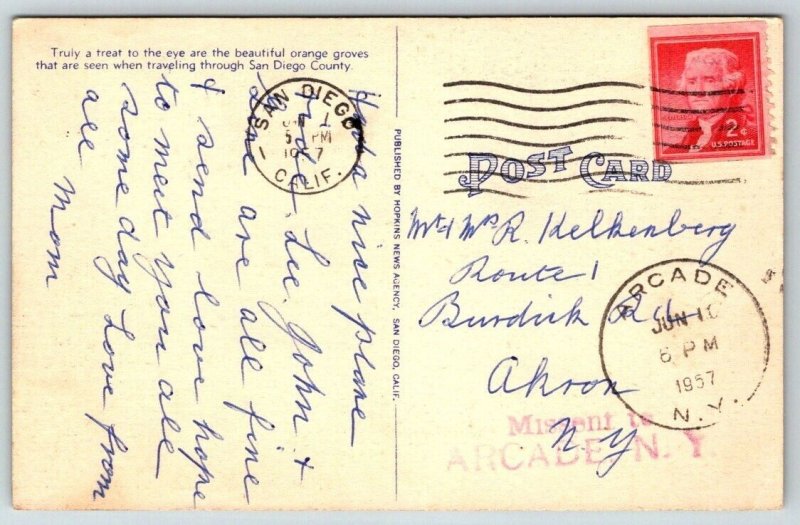 Truly a treat to the eye are the beautiful orange groves
that are seen when traveling through San Diego County.
Had a nice plane
ride. Lee, John &
Jane are all fine
& send love hope
to meet you all
some day Love from
all
Mom
PUBLISHED BY HOPKINS NEWS AGENCY, SAN DIEGO, CALIF.
SAN DIEGO
JUN 1
5 PM
1957
CALIF.
2¢
U.S. POSTAGE
POST CARD
Mr & Mrs R. Kelkenberg
Route 1
Burdick Rd
Akron
N.Y
ARCADE
JUN 10
6 PM
1957
N.Y.
Missent to
ARCADE, N. Y.